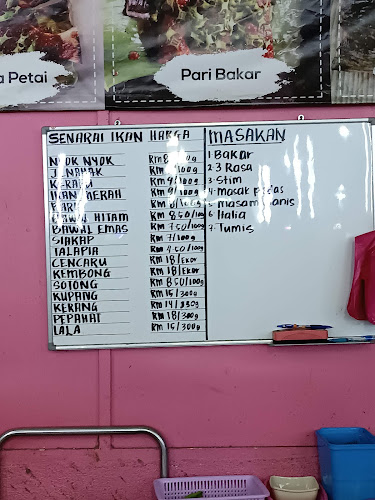 a Petai
Pari Bakar
SENARAI IKAN HARGA
NYOK NYOK RM 8/100g
JENAHAK /100g
KERAPU RM 9/100g
IKAN MERAH RM 9/100g
PARI RM 8/100g
BAWAL HITAM RM 8.50/100g
BAWAL EMAS RM 7.50/100g
SIAKAP RM 7/100g
TALAPIA RM 4.50/100g
CENCARU RM 18/EKOR
KEMBONG RM 18/EKOR
SOTONG RM 8.50/100g
KUPANG RM 15/300g
KERANG RM 14/350g
PEPAHAT RM 18/300g
LALA RM 15/300g
MASAKAN
1. Bakar
2. 3 Rasa
3. Stim
4. masak pedas
masam manis
6 Halia
7 Tumis